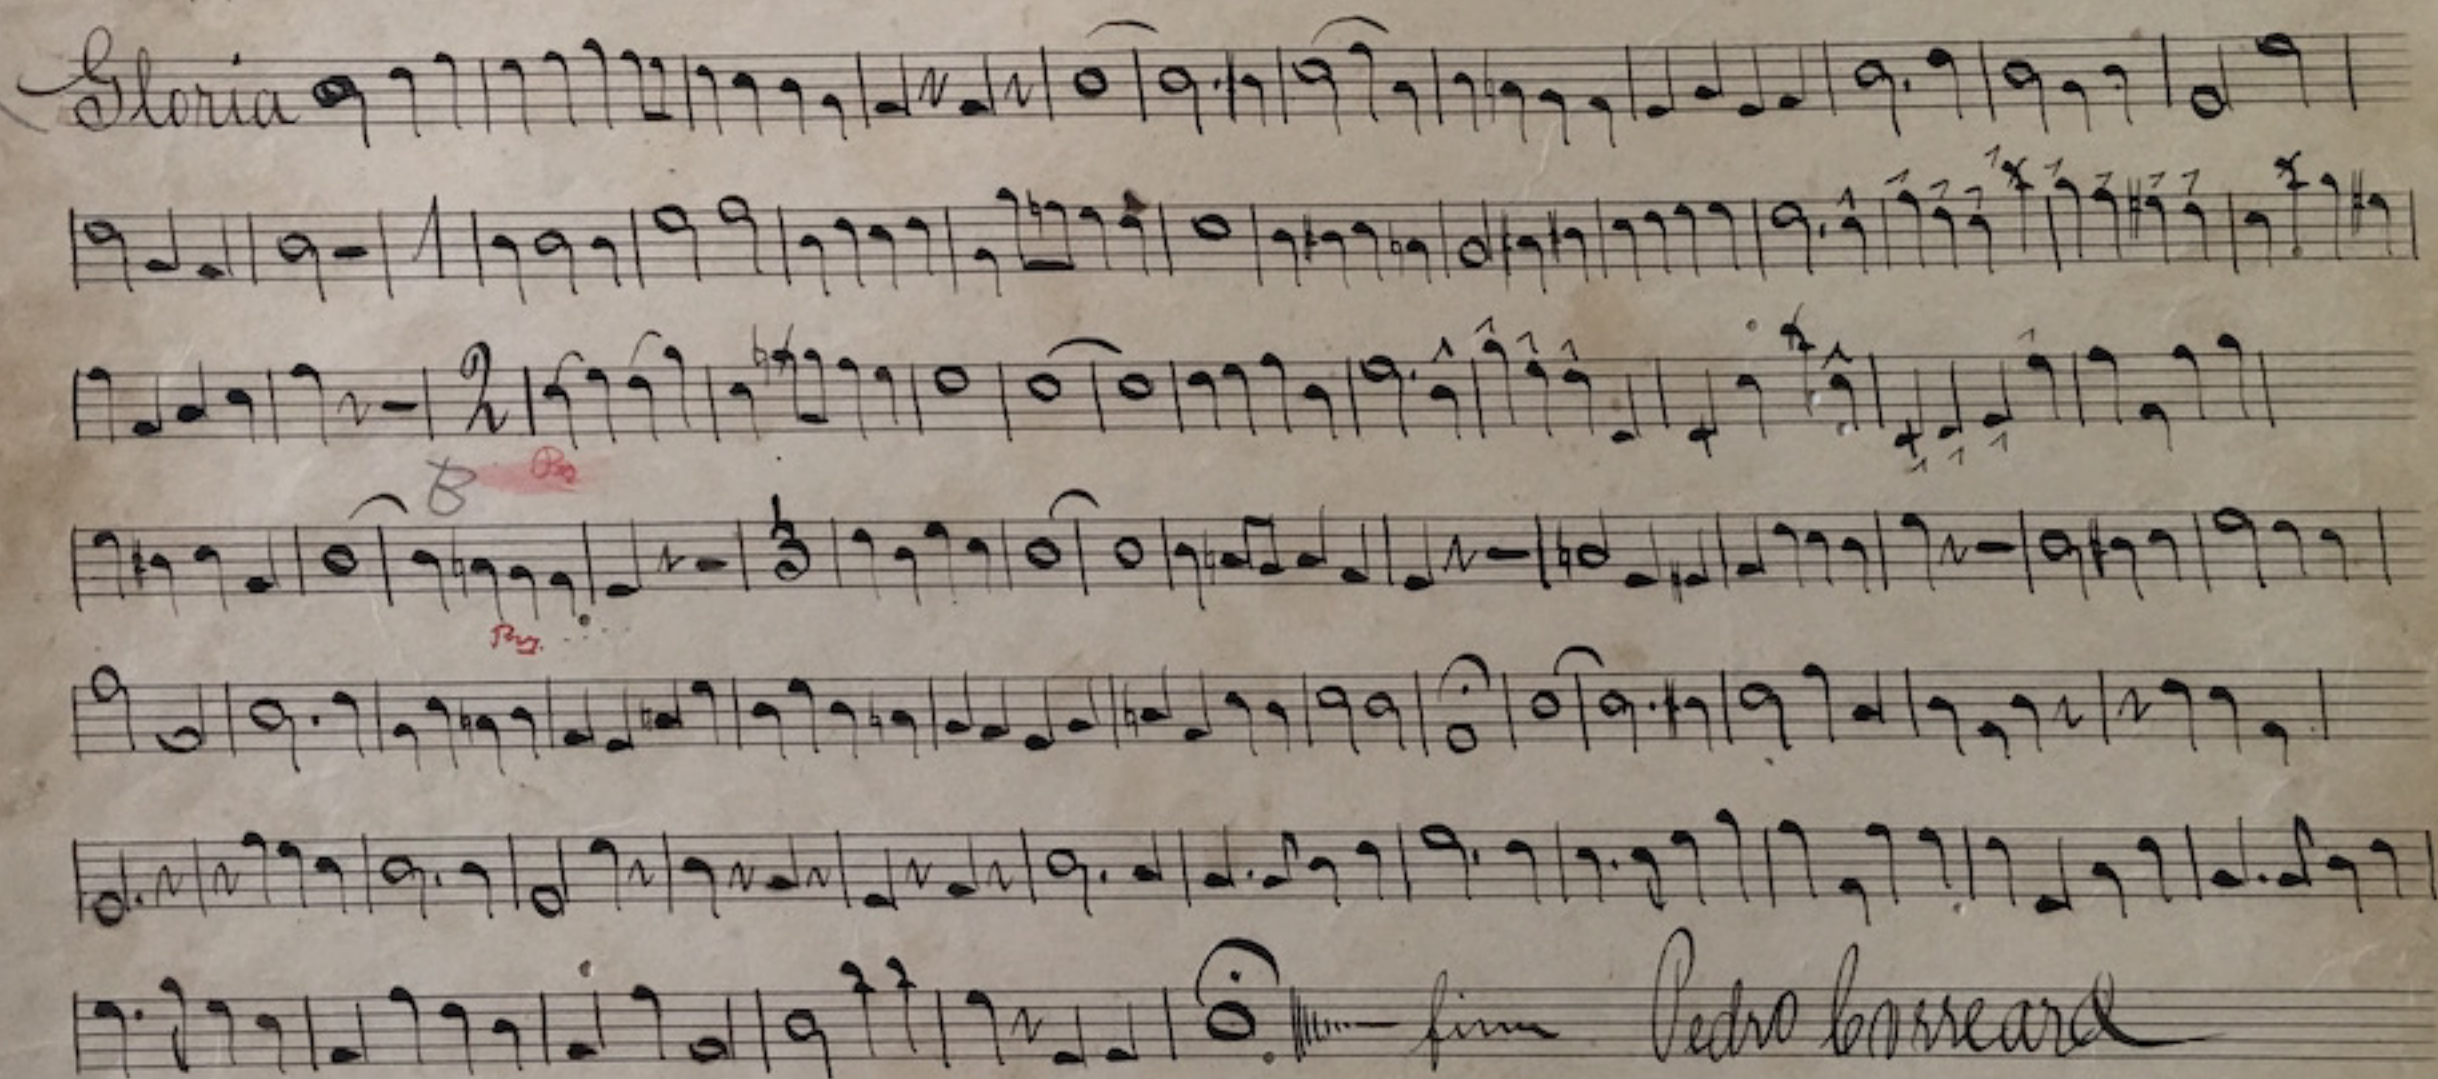 Gloria
1
2
B
3
fim Pedro Correard